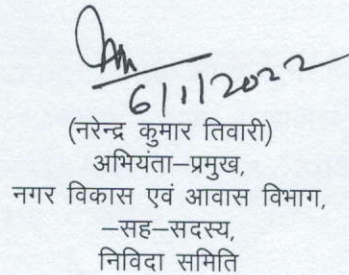 6/1/2022
(नरेन्द्र कुमार तिवारी)
अभियंता–प्रमुख,
नगर विकास एवं आवास विभाग,
–सह–सदस्य,
निविदा समिति